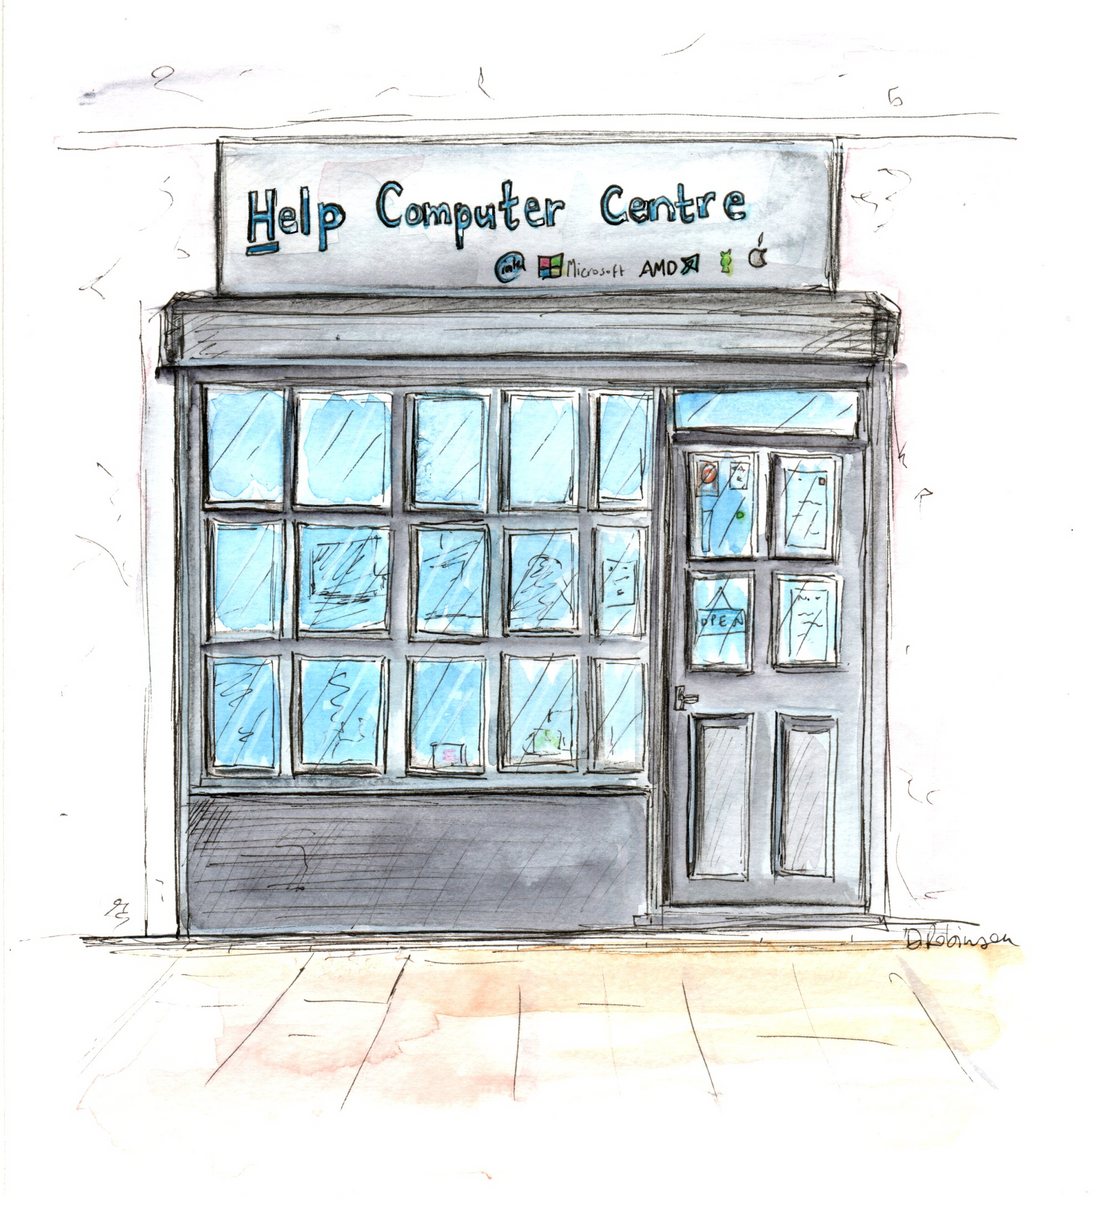 Help Computer Centre
intel Microsoft AMD
OPEN
D.Robinson